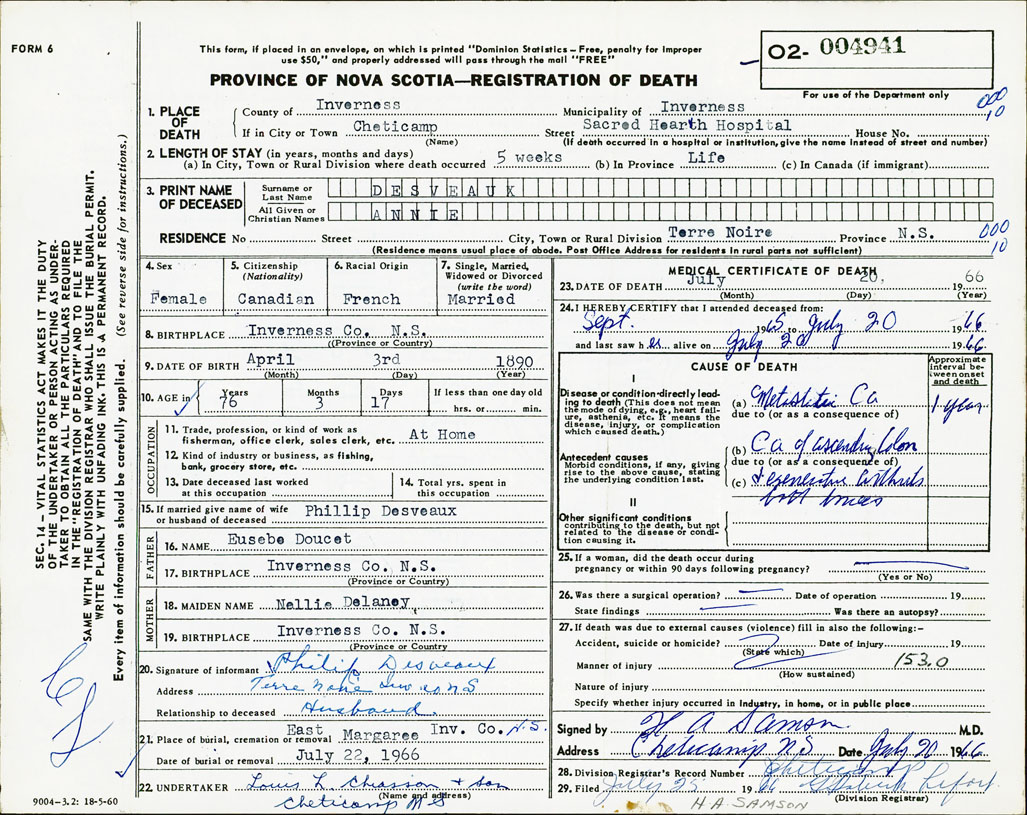 FORM 6
This form, if placed in an envelope, on which is printed "Dominion Statistics – Free, penalty for improper
use $50," and properly addressed will pass through the mail "FREE"
PROVINCE OF NOVA SCOTIA—REGISTRATION OF DEATH
O2- 004941
For use of the Department only
000
10
1. PLACE OF DEATH
County of Inverness Municipality of Inverness
If in City or Town Cheticamp Street Sacred Hearth Hospital House No.
(Name) (If death occurred in a hospital or institution, give the name instead of street and number)
2. LENGTH OF STAY (in years, months and days)
(a) In City, Town or Rural Division where death occurred 5 weeks (b) In Province Life (c) In Canada (if immigrant)
3. PRINT NAME OF DECEASED
Surname or Last Name DESVEAUX
All Given or Christian Names ANNIE
RESIDENCE No Street City, Town or Rural Division Terre Noire Province N.S.
000
10
(Residence means usual place of abode. Post Office Address for residents in rural parts not sufficient)
4. Sex
Female
5. Citizenship
(Nationality)
Canadian
6. Racial Origin
French
7. Single, Married,
Widowed or Divorced
(write the word)
Married
8. BIRTHPLACE Inverness Co. N.S.
(Province or Country)
9. DATE OF BIRTH April 3rd 1890
(Month) (Day) (Year)
10. AGE in Years Months Days If less than one day old
76 3 17 hrs. or min.
OCCUPATION
11. Trade, profession, or kind of work as
fisherman, office clerk, sales clerk, etc. At Home
12. Kind of industry or business, as fishing,
bank, grocery store, etc.
13. Date deceased last worked
at this occupation
14. Total yrs. spent in
this occupation
15. If married give name of wife
or husband of deceased Phillip Desveaux
FATHER
16. NAME Eusebe Doucet
17. BIRTHPLACE Inverness Co. N.S.
(Province or Country)
MOTHER
18. MAIDEN NAME Nellie Delaney
19. BIRTHPLACE Inverness Co. N.S.
(Province or Country)
20. Signature of informant Philip Desveaux
Address Terre Noire Inv Co NS
Relationship to deceased Husband
21. Place of burial, cremation or removal East Margaree Inv. Co. N.S.
Date of burial or removal July 22, 1966
22. UNDERTAKER Louis L. Chiasson & Son
(Name and address)
Cheticamp N S
9004–3.2: 18-5-60
MEDICAL CERTIFICATE OF DEATH
23. DATE OF DEATH July 20, 1966
(Month) (Day) (Year)
24. I HEREBY CERTIFY that I attended deceased from:
Sept. 1965 to July 20 1966
and last saw her alive on July 20 1966
CAUSE OF DEATH
Approximate
interval be-
tween onset
and death
I
Disease or condition directly lead-
ing to death (This does not mean
the mode of dying, e.g., heart fail-
ure, asthenia, etc. It means the
disease, injury, or complication
which caused death.)
(a) Metastatic Ca 1 year
due to (or as a consequence of)
Antecedent causes
Morbid conditions, if any, giving
rise to the above cause, stating
the underlying condition last.
(b) Ca of ascending Colon
due to (or as a consequence of)
(c) Degenerative Arthritis
both knees
II
Other significant conditions
contributing to the death, but not
related to the disease or condi-
tion causing it.
25. If a woman, did the death occur during
pregnancy or within 90 days following pregnancy?
(Yes or No)
26. Was there a surgical operation? Date of operation 19
State findings Was there an autopsy?
27. If death was due to external causes (violence) fill in also the following:–
Accident, suicide or homicide? Date of injury 19
(State which)
Manner of injury 153.0
(How sustained)
Nature of injury
Specify whether injury occurred in industry, in home, or in public place
Signed by H A Samson M.D.
Address Cheticamp N S Date July 20 1966
28. Division Registrar's Record Number Cheticamp
29. Filed July 25 1966
(Division Registrar)
H A SAMSON
SEC. 14 – VITAL STATISTICS ACT MAKES IT THE DUTY
OF THE UNDERTAKER OR PERSON ACTING AS UNDER-
TAKER TO OBTAIN ALL THE PARTICULARS REQUIRED
IN THE "REGISTRATION OF DEATH" AND TO FILE THE
SAME WITH THE DIVISION REGISTRAR WHO SHALL ISSUE THE BURIAL PERMIT.
WRITE PLAINLY WITH UNFADING INK. THIS IS A PERMANENT RECORD.
Every item of information should be carefully supplied. (See reverse side for instructions.)